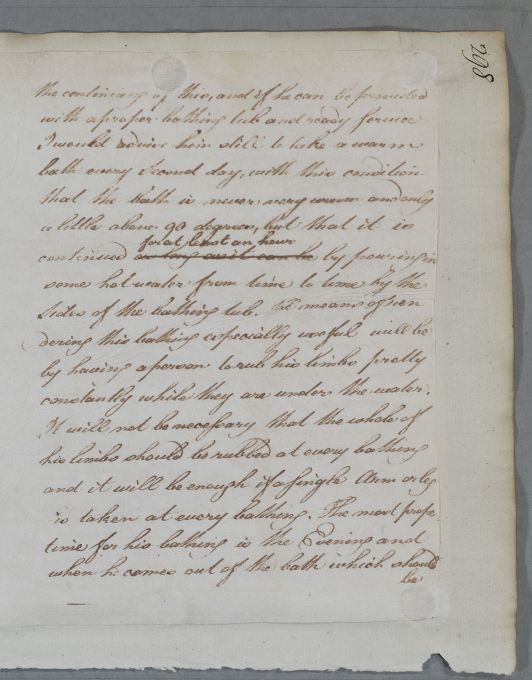 298
the continuing of this, and if he can be provided
with a proper bathing tub and ready service
I would advise him still to take a warm
bath every Second day, with this condition
that the bath is never very warm and only
a little above 90 degrees, but that it is
for at least an hour
continued as long as it can be by pouring in
some hot water from time to time by the
sides of the bathing tub. The means of ren
dering this bathing especially useful will be
by having a person to rub his limbs pretty
constantly while they are under the water.
It will not be necessary that the whole of
his limbs should be rubbed at every bathing
and it will be enough if a single Arm or leg
is taken at every bathing. The most prope
time for his bathing is the Evening and
when he comes out of the bath which should
be